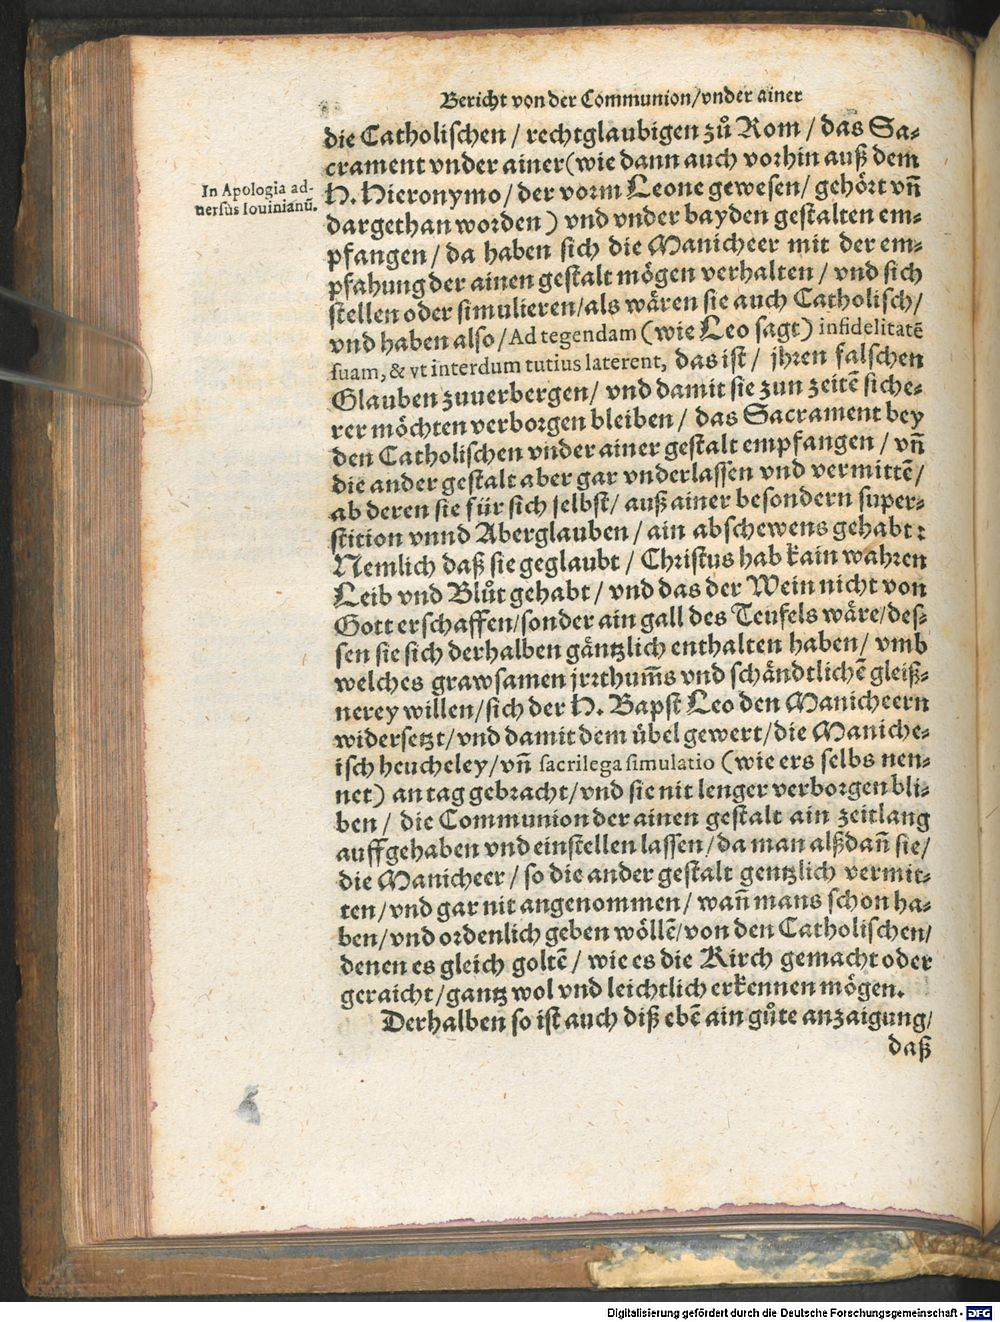 Bericht von der Communion/vnder ainer
die Catholischen / rechtglaubigen zů Rom / das Sa-
crament vnder ainer(wie dann auch vorhin auß dem
H. Hieronymo / der vorm Leone gewesen / gehört vñ
dargethan worden ) vnd vnder bayden gestalten em-
pfangen / da haben sich die Manicheer mit der em-
pfahung der ainen gestalt mögen verhalten / vnd sich
stellen oder simulieren/als wären sie auch Catholisch/
vnd haben also/Ad tegendam (wie Leo sagt) infidelitatē
suam, & vt interdum tutius laterent, das ist / jhren falschen
Glauben zuuerbergen/ vnd damit sie zun zeitē siche-
rer möchten verborgen bleiben / das Sacrament bey
den Catholischen vnder ainer gestalt empfangen / vñ
die ander gestalt aber gar vnderlassen vnd vermittē/
ab deren sie für sich selbst/ auß ainer besondern super-
stition vnnd Aberglauben / ain abschewens gehabt:
Nemlich daß sie geglaubt / Christus hab kain wahren
Leib vnd Blůt gehabt / vnd das der Wein nicht von
Gott erschaffen/sonder ain gall des Teufels wäre/des-
sen sie sich derhalben gäntzlich enthalten haben/ vmb
welches grawsamen jrrthum̃s vnd schändtlichē gleiß-
nerey willen/sich der H. Bapst Leo den Manicheern
widersetzt/vnd damit dem übel gewert/die Maniche-
isch heucheley/vñ sacrilega simulatio (wie ers selbs nen-
net) an tag gebracht/vnd sie nit lenger verborgen bli-
ben / die Communion der ainen gestalt ain zeitlang
auffgehaben vnd einstellen lassen/da man alßdañ sie/
die Manicheer / so die ander gestalt gentzlich vermit-
ten/vnd gar nit angenommen/ wañ mans schon ha-
ben/vnd ordenlich geben wöllē/von den Catholischen/
denen es gleich goltē / wie es die Kirch gemacht oder
geraicht/gantz wol vnd leichtlich erkennen mögen.
Derhalben so ist auch diß ebē ain gůte anzaigung/
daß
In Apologia ad-
uersùs Iouinianū.
Digitalisierung gefördert durch die Deutsche Forschungsgemeinschaft - DFG